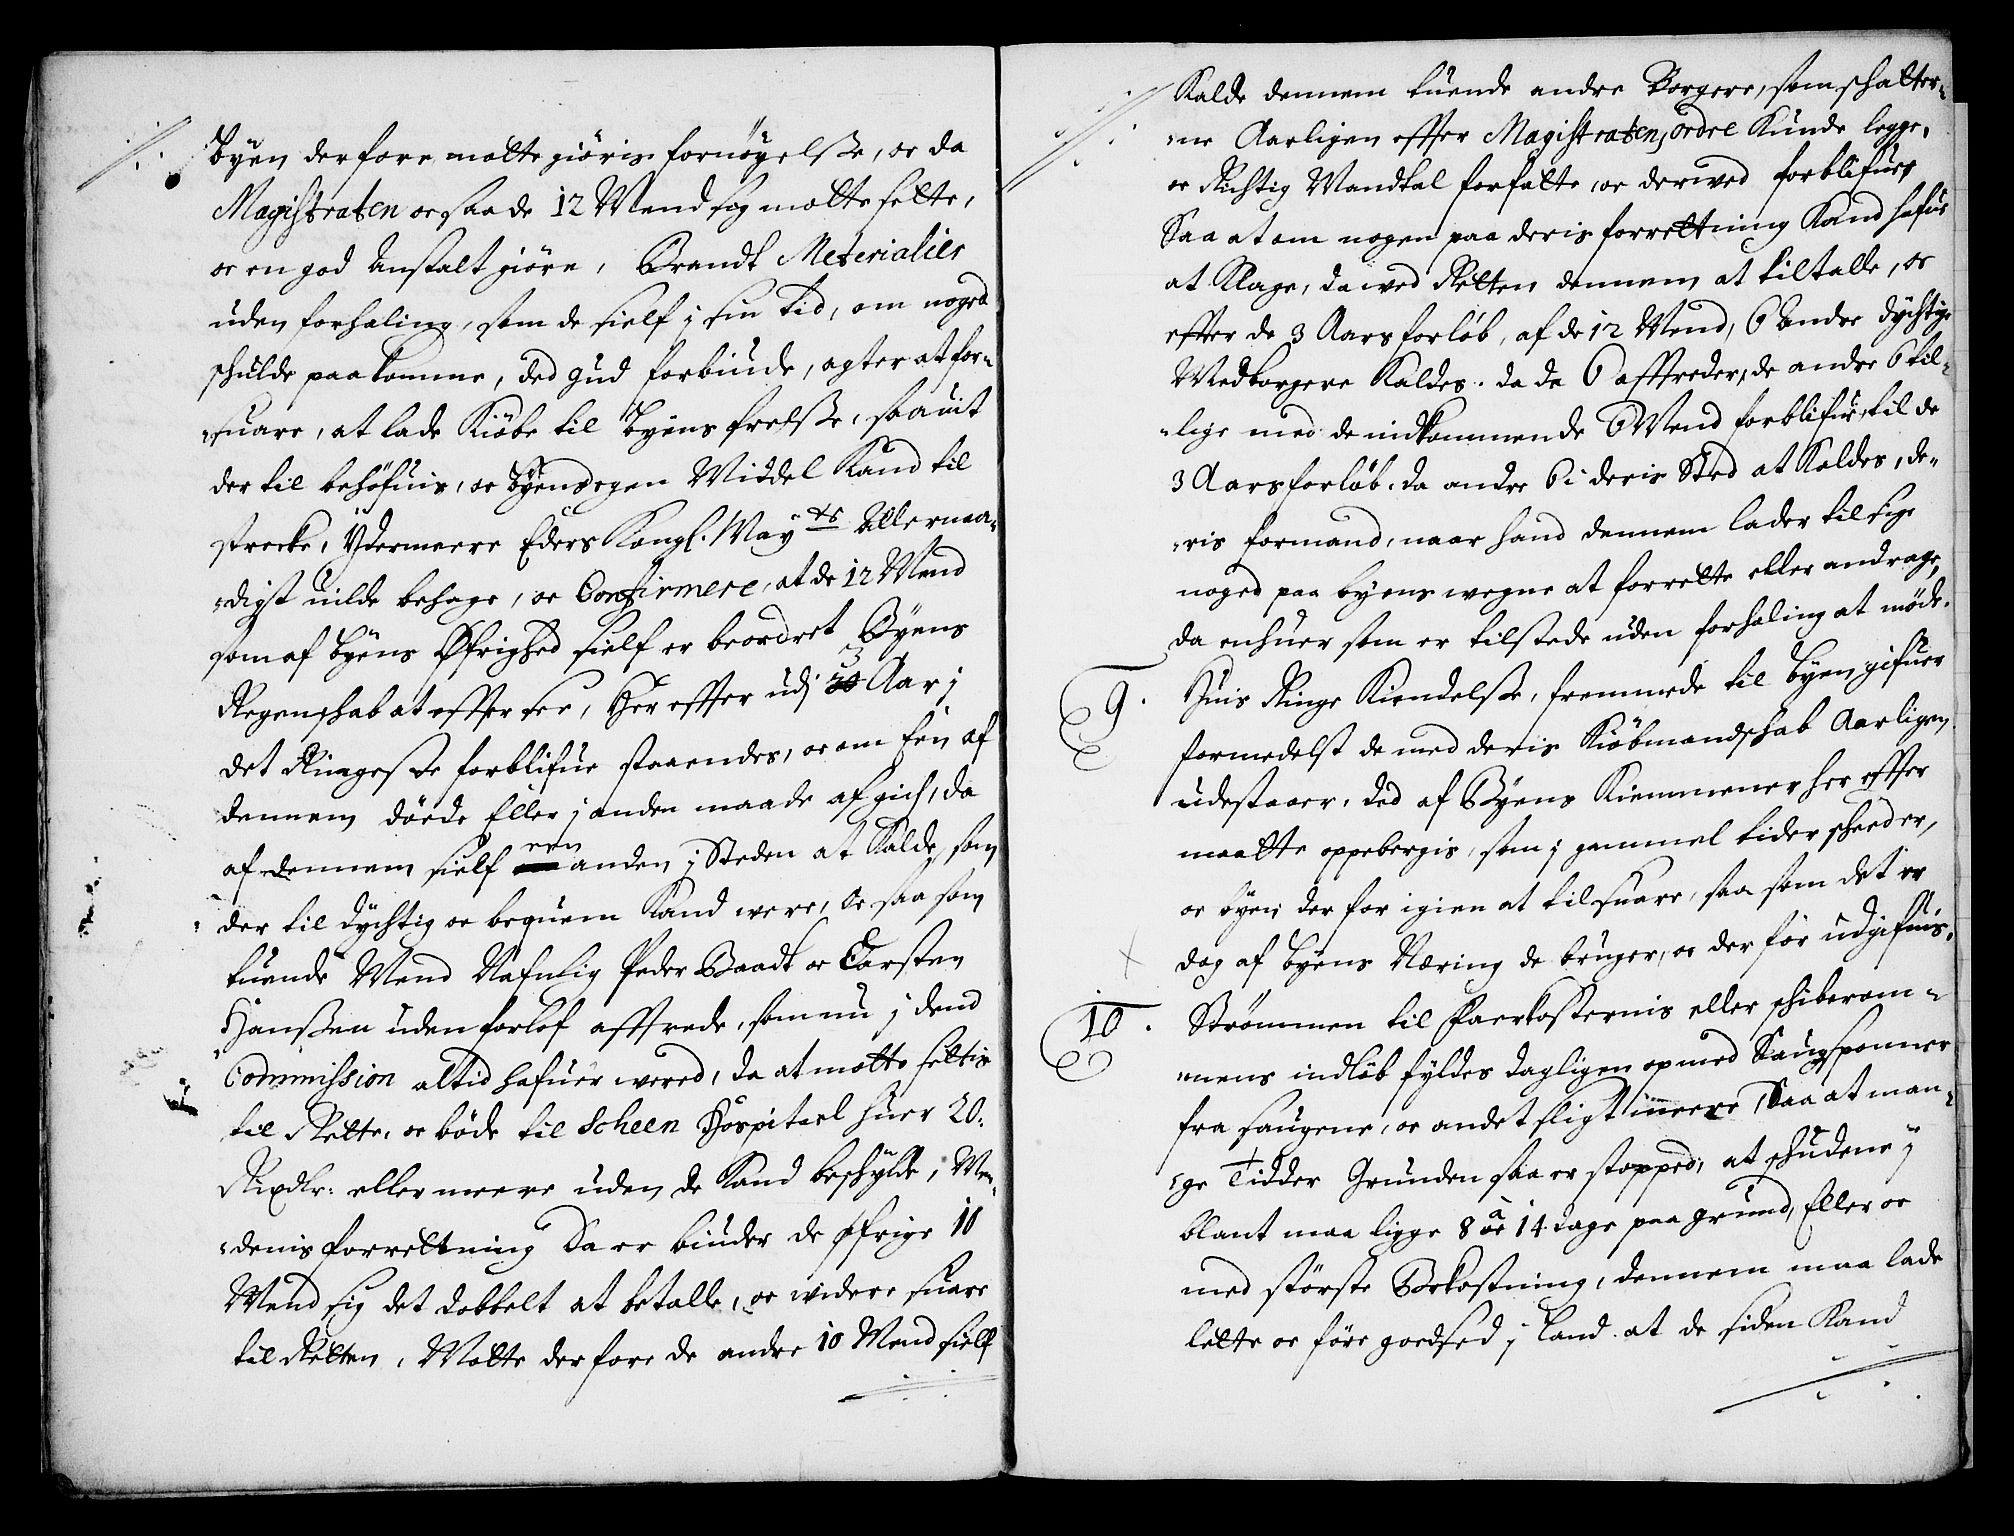 Byen derfore motte giöris fornöyelsse, oc da
Magistraten oc saa de 12 Mend sig motte sette,
oc en god Anstalt giöre, Brandt Meterialier
uden forhaling, som de sielf i sin tid, om noged
schulde paakomme, ded gud forbiude, agter at for-
suare, at lade Kiöbe til Byens frelsse, saauit
der til behöfuis, oc Byens egen Middel Kand til
strecke, Ydermeere Eders Kongl. Maytz Allernaa-
digst uilde behage, oc Confirmere, at de 12 Mend
som af Byens Øfrighed sielf er beordret Byens
Regenschab at effter see, Her effter udj 3 Aar i
det Ringeste forblifue staaendes, oc om Een af
dennem döde Eller i anden maade afgick, da
af dennem sielf een anden i Steden at Kalde, som
der til dychtig oc bequem Kand were, Oc saa som
tuende Mend Nafnlig Peder Baadt oc Carsten
Hanssen uden forlof afftrede, som nu i dend
Commission altid hafuer wered, da at motte settis
til Rette, oc böde til Scheen Hospitael huer 20.
Rixdlr: eller meere uden de Kand beschylde, Men-
denis forrettning Da er biuder de Øfrige 10
Mend sig det dobbelt at betalle, oc widere suare
til Retten, Motte derfore de andre 10 Mend sielf
Kalde dennem tuende andre Borgere, som schatter-
ne Aarligen effter Magistratens ordre Kunde legge,
oc Richtig Mandtal forfatte, oc derwed forblifues
Saa at om nogen paa deris forrettning Kand hafue
at Klage, da wed Retten dennem at tiltalle, oc
effter de 3 Aars forlöb, af de 12 Mend, 6 Andre dychtige
Medborgere Kaldes. da de 6 afftreder, de andre 6 til-
lige med de indkommende 6 Mend forblifue, til de
3 Aars forlöb. da andre 6 i deris Sted at Kaldes, de-
ris formand, naar hand dennem lader tilsige
noged paa byens wegne at forrette eller andrage,
da enhuer som er tilstede uden forhaling at möde.
9. Huis Ringe Kiendelsse, fremmede til Byen gifuer
formedelst de med deris Kiöbmandschab Aarligen
udestaaer, ded af Byens Kiemmener her effter
maatte oppebergis, som i gammel tider scheeder,
oc Byen der for igien at tilsuare, saa som det er
dog af Byens Næring de bruger, oc der för udgifuis.
10. Strømmen til Paerkosternis eller schiberom-
mens indlöb fyldes dagligen op med Saugsponner
fra saugene, oc andet sligt meere, Saa at man-
ge Tidder Grunden saa er stopped, at schudene i
blant maa ligge 8 a 14 dage paa grund, Eller oc
med störste Bekostning, dennem maa lade
lette oc före goedsed i Land. at de siden Kand